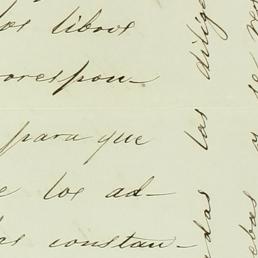 los libros
correspon-
para que
e los ad-
as constan-
dilige
las
das